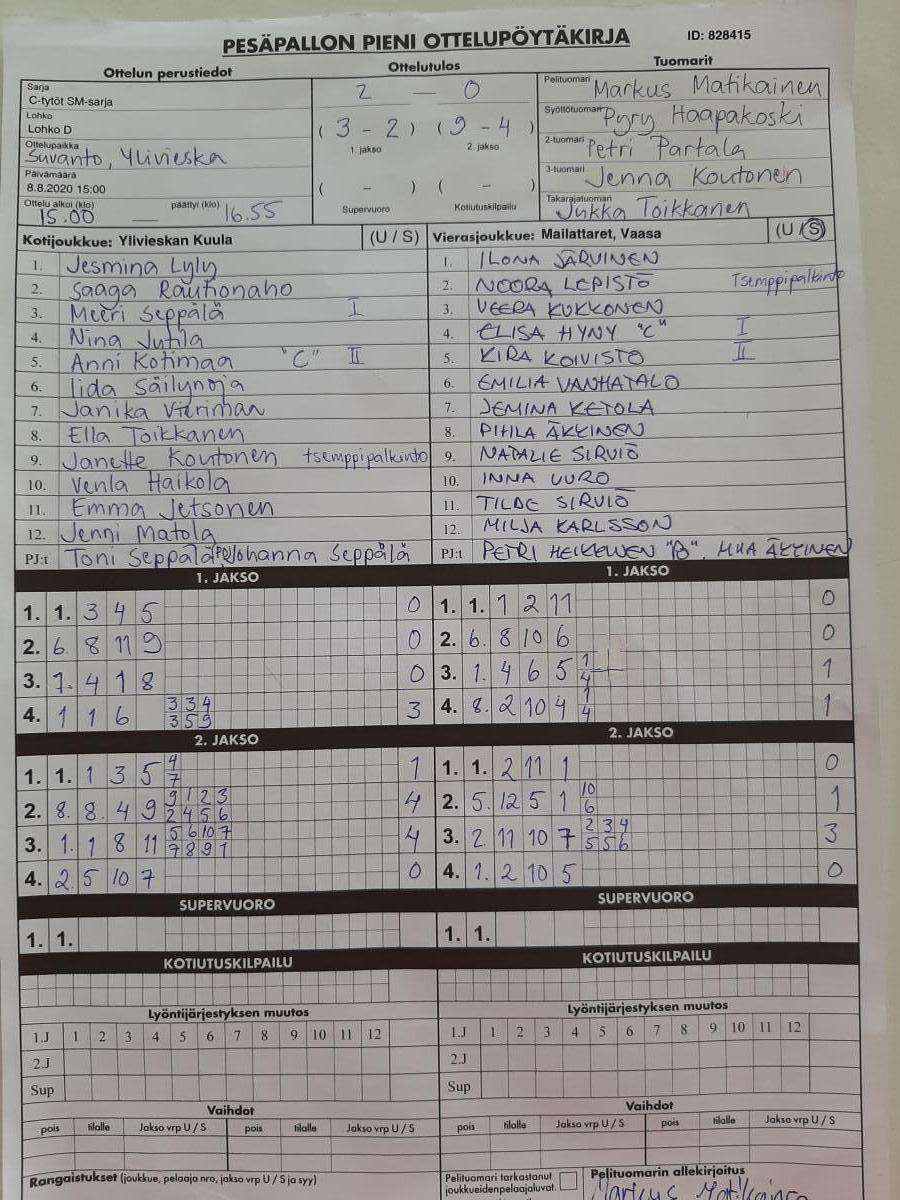 PESÄPALLON PIENI OTTELUPÖYTÄKIRJA ID: 828415
Ottelun perustiedot Ottelutulos Tuomarit
Sarja
C-tytöt SM-sarja
Lohko
Lohko D
Ottelupaikka
Suvanto, Ylivieska
Päivämäärä
8.8.2020 15:00
Ottelu alkoi (klo) päättyi (klo)
15.00 — 16.55
2 — 0
( 3 - 2 ) ( 9 - 4 )
1. jakso 2. jakso
( - ) ( - )
Supervuoro Kotiutuskilpailu
Pelituomari Markus Matikainen
Syöttötuomari Pyry Haapakoski
2-tuomari Petri Partala
3-tuomari Jenna Koutonen
Takarajatuomari Jukka Toikkanen
Kotijoukkue: Ylivieskan Kuula (U / S)
1. Jesmina Lyly
2. Saaga Rautionaho
3. Meeri Seppälä I
4. Nina Jutila
5. Anni Kotimaa "C" II
6. Iida Säilynoja
7. Janika Vieriman
8. Ella Toikkanen
9. Janette Koutonen tsemppipalkinto
10. Venla Haikola
11. Emma Jetsonen
12. Jenni Matola
PJ:t Toni Seppälä (PJ) Johanna Seppälä
Vierasjoukkue: Mailattaret, Vaasa (U / S)
1. ILONA JÄRVINEN
2. NOORA LEPISTÖ Tsemppipalkinto
3. VEERA KUKKONEN
4. ELISA HYNY "C" I
5. KIRA KOIVISTO II
6. EMILIA VANHATALO
7. JEMINA KETOLA
8. PIHLA ÄKKINEN
9. NATALIE SIRVIÖ
10. INNA UURO
11. TILDE SIRVIÖ
12. MILJA KARLSSON
PJ:t PETRI "B", MIIA ÄKKINEN
1. JAKSO
1. 1. 3 4 5 0
2. 6. 8 11 9 0
3. 7. 4 1 8 0
4. 1 1 6 3 3 4 3
3 5 9
1. JAKSO
1. 1. 1 2 11 0
2. 6. 8 10 6 0
3. 1. 4 6 5 1 1
4
4. 8. 2 10 4 1 1
4
2. JAKSO
1. 1. 1 3 5 4 1
7
2. 8. 8. 4 9 9 1 2 3 4
2 4 5 6
3. 1. 1 8 11 5 6 10 7 4
7 8 9 1
4. 2. 5 10 7 0
2. JAKSO
1. 1. 2 11 1 0
2. 5. 12 5 1 10 1
6
3. 2. 11 10 7 2 3 4 3
5 5 6
4. 1. 2 10 5 0
SUPERVUORO SUPERVUORO
1. 1. 1. 1.
KOTIUTUSKILPAILU KOTIUTUSKILPAILU
Lyöntijärjestyksen muutos Lyöntijärjestyksen muutos
1.J 1 2 3 4 5 6 7 8 9 10 11 12 1.J 1 2 3 4 5 6 7 8 9 10 11 12
2.J 2.J
Sup Sup
Vaihdot Vaihdot
pois tilalle Jakso vrp U / S pois tilalle Jakso vrp U / S pois tilalle Jakso vrp U / S pois tilalle Jakso vrp U / S
Rangaistukset (joukkue, pelaaja nro, jakso vrp U / S ja syy)
Pelituomari tarkastanut
joukkueidenpelaajaluvat.
Pelituomarin allekirjoitus
Markus